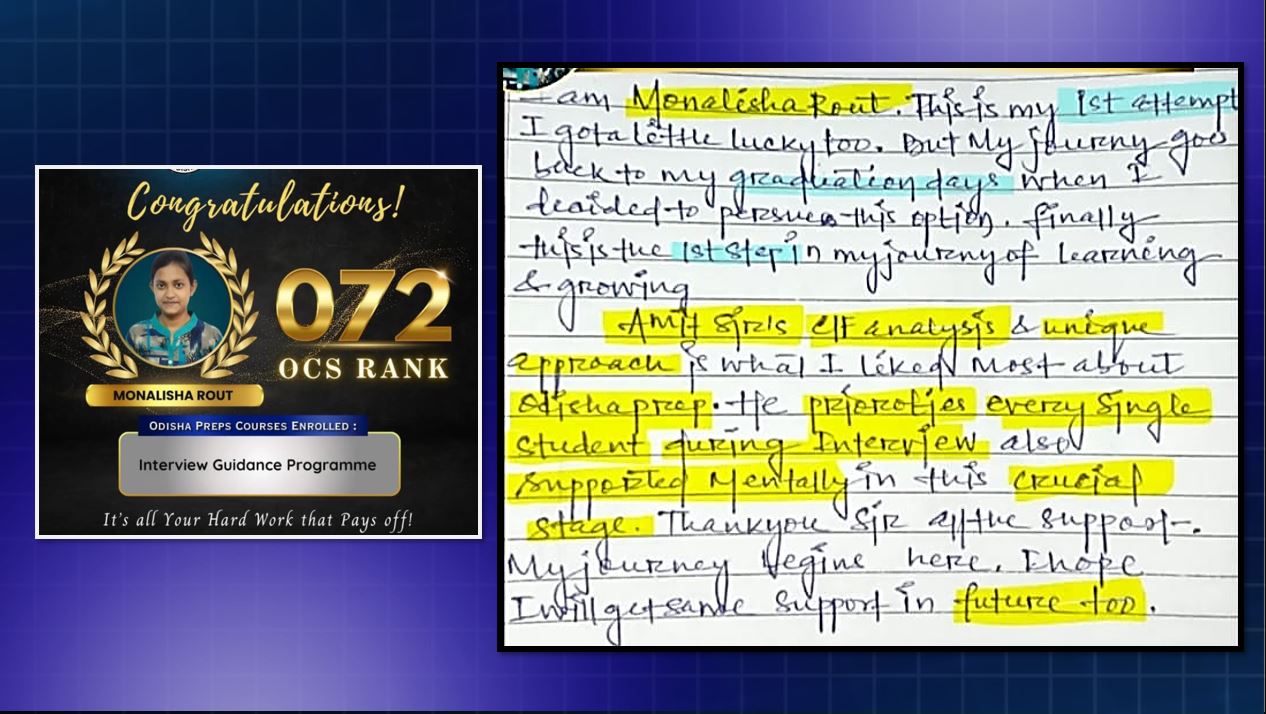 Congratulations!
072
OCS RANK
MONALISHA ROUT
ODISHA PREPS COURSES ENROLLED :
Interview Guidance Programme
It's all Your Hard Work that Pays off!
I am Monalisha Rout. This is my 1st attempt
I got a little lucky too. But My journy goes
back to my graduation days when I
decided to persue this option. finally
this is the 1st step in my journy of learning
& growing
Amit Sir's CIF analysis & unique
approach is what I liked most about
Odisha prep. He prioroties every single
student during Interview also
supported Mentally in this crucial
stage. Thankyou Sir all the support.
My journey begins here. I hope
I will get same support in future too.